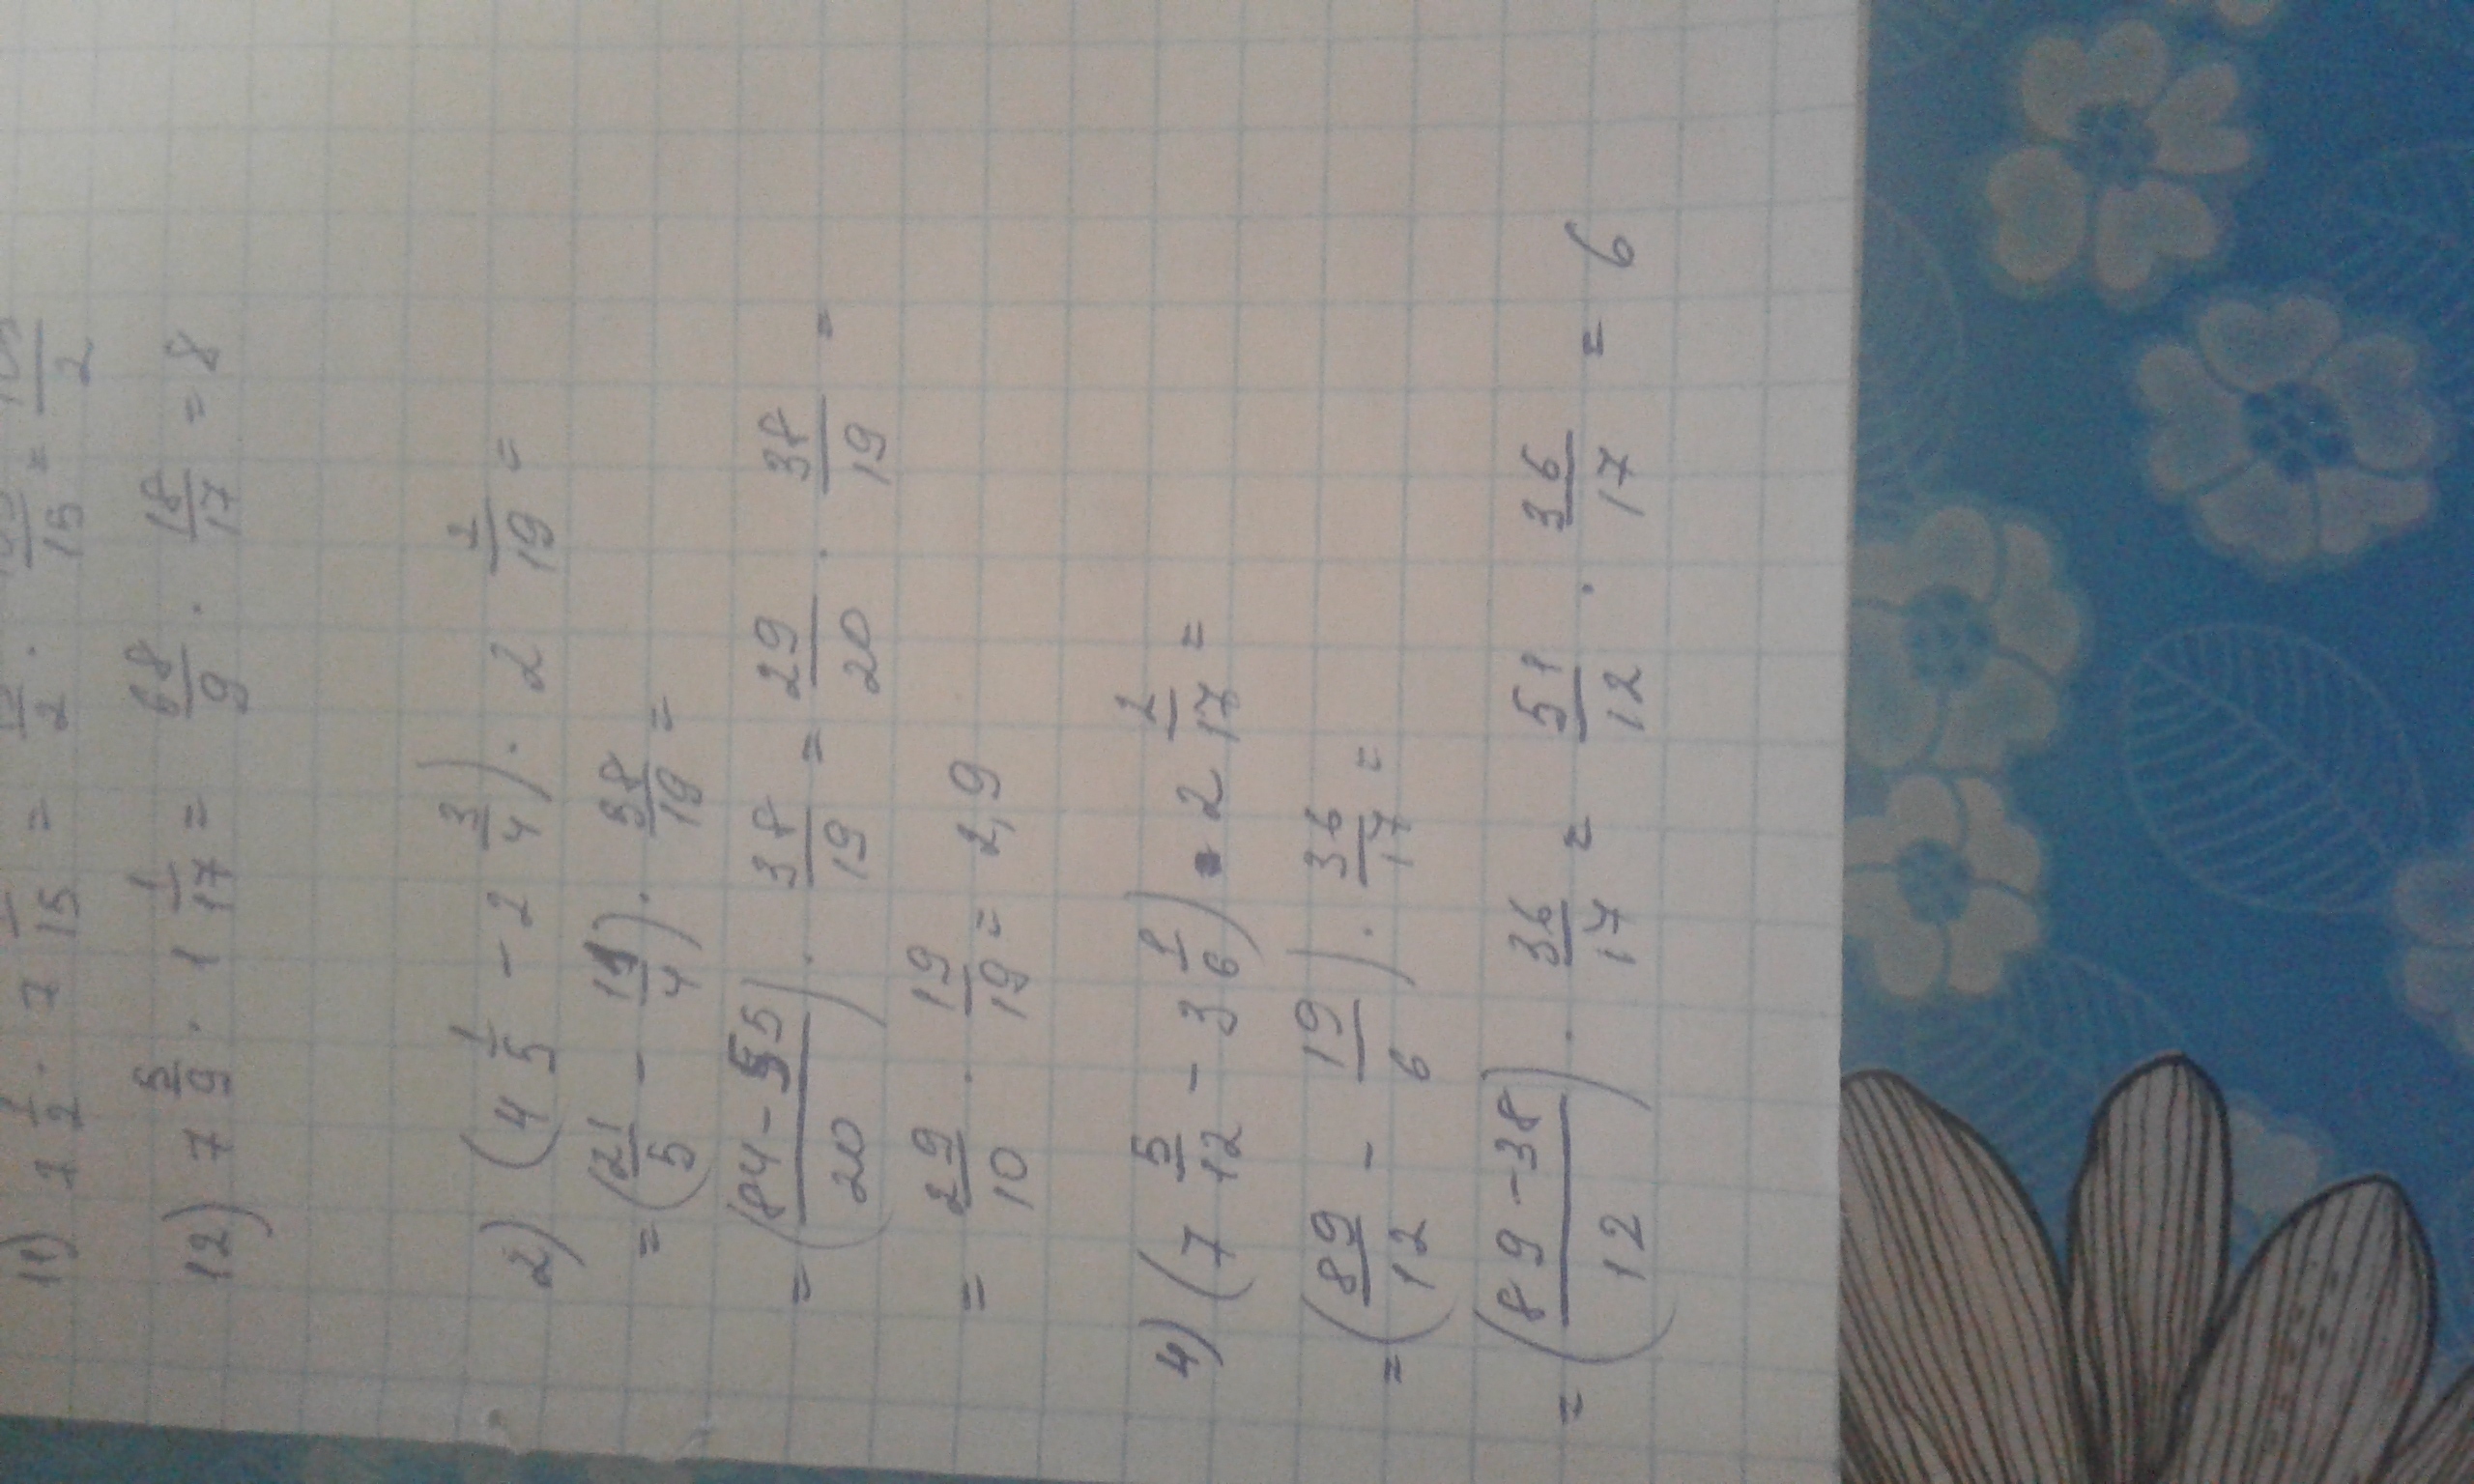 11) 7 1/2 · 7 1/15 = 15/2 · /15 = /2
12) 7 5/9 · 1 1/17 = 68/9 · 18/17 = 8
2) (4 1/5 - 2 3/4) · 2 /19 =
= (21/5 - 11/4) · 38/19 =
= ((84-55)/20) · 38/19 = 29/20 · 38/19 =
= 29/10 · 19/19 = 2,9
4) (7 5/12 - 3 1/6) · 2 2/17 =
= (89/12 - 19/6) · 36/17 =
= ((89-38)/12) · 36/17 = 51/12 · 36/17 = 6